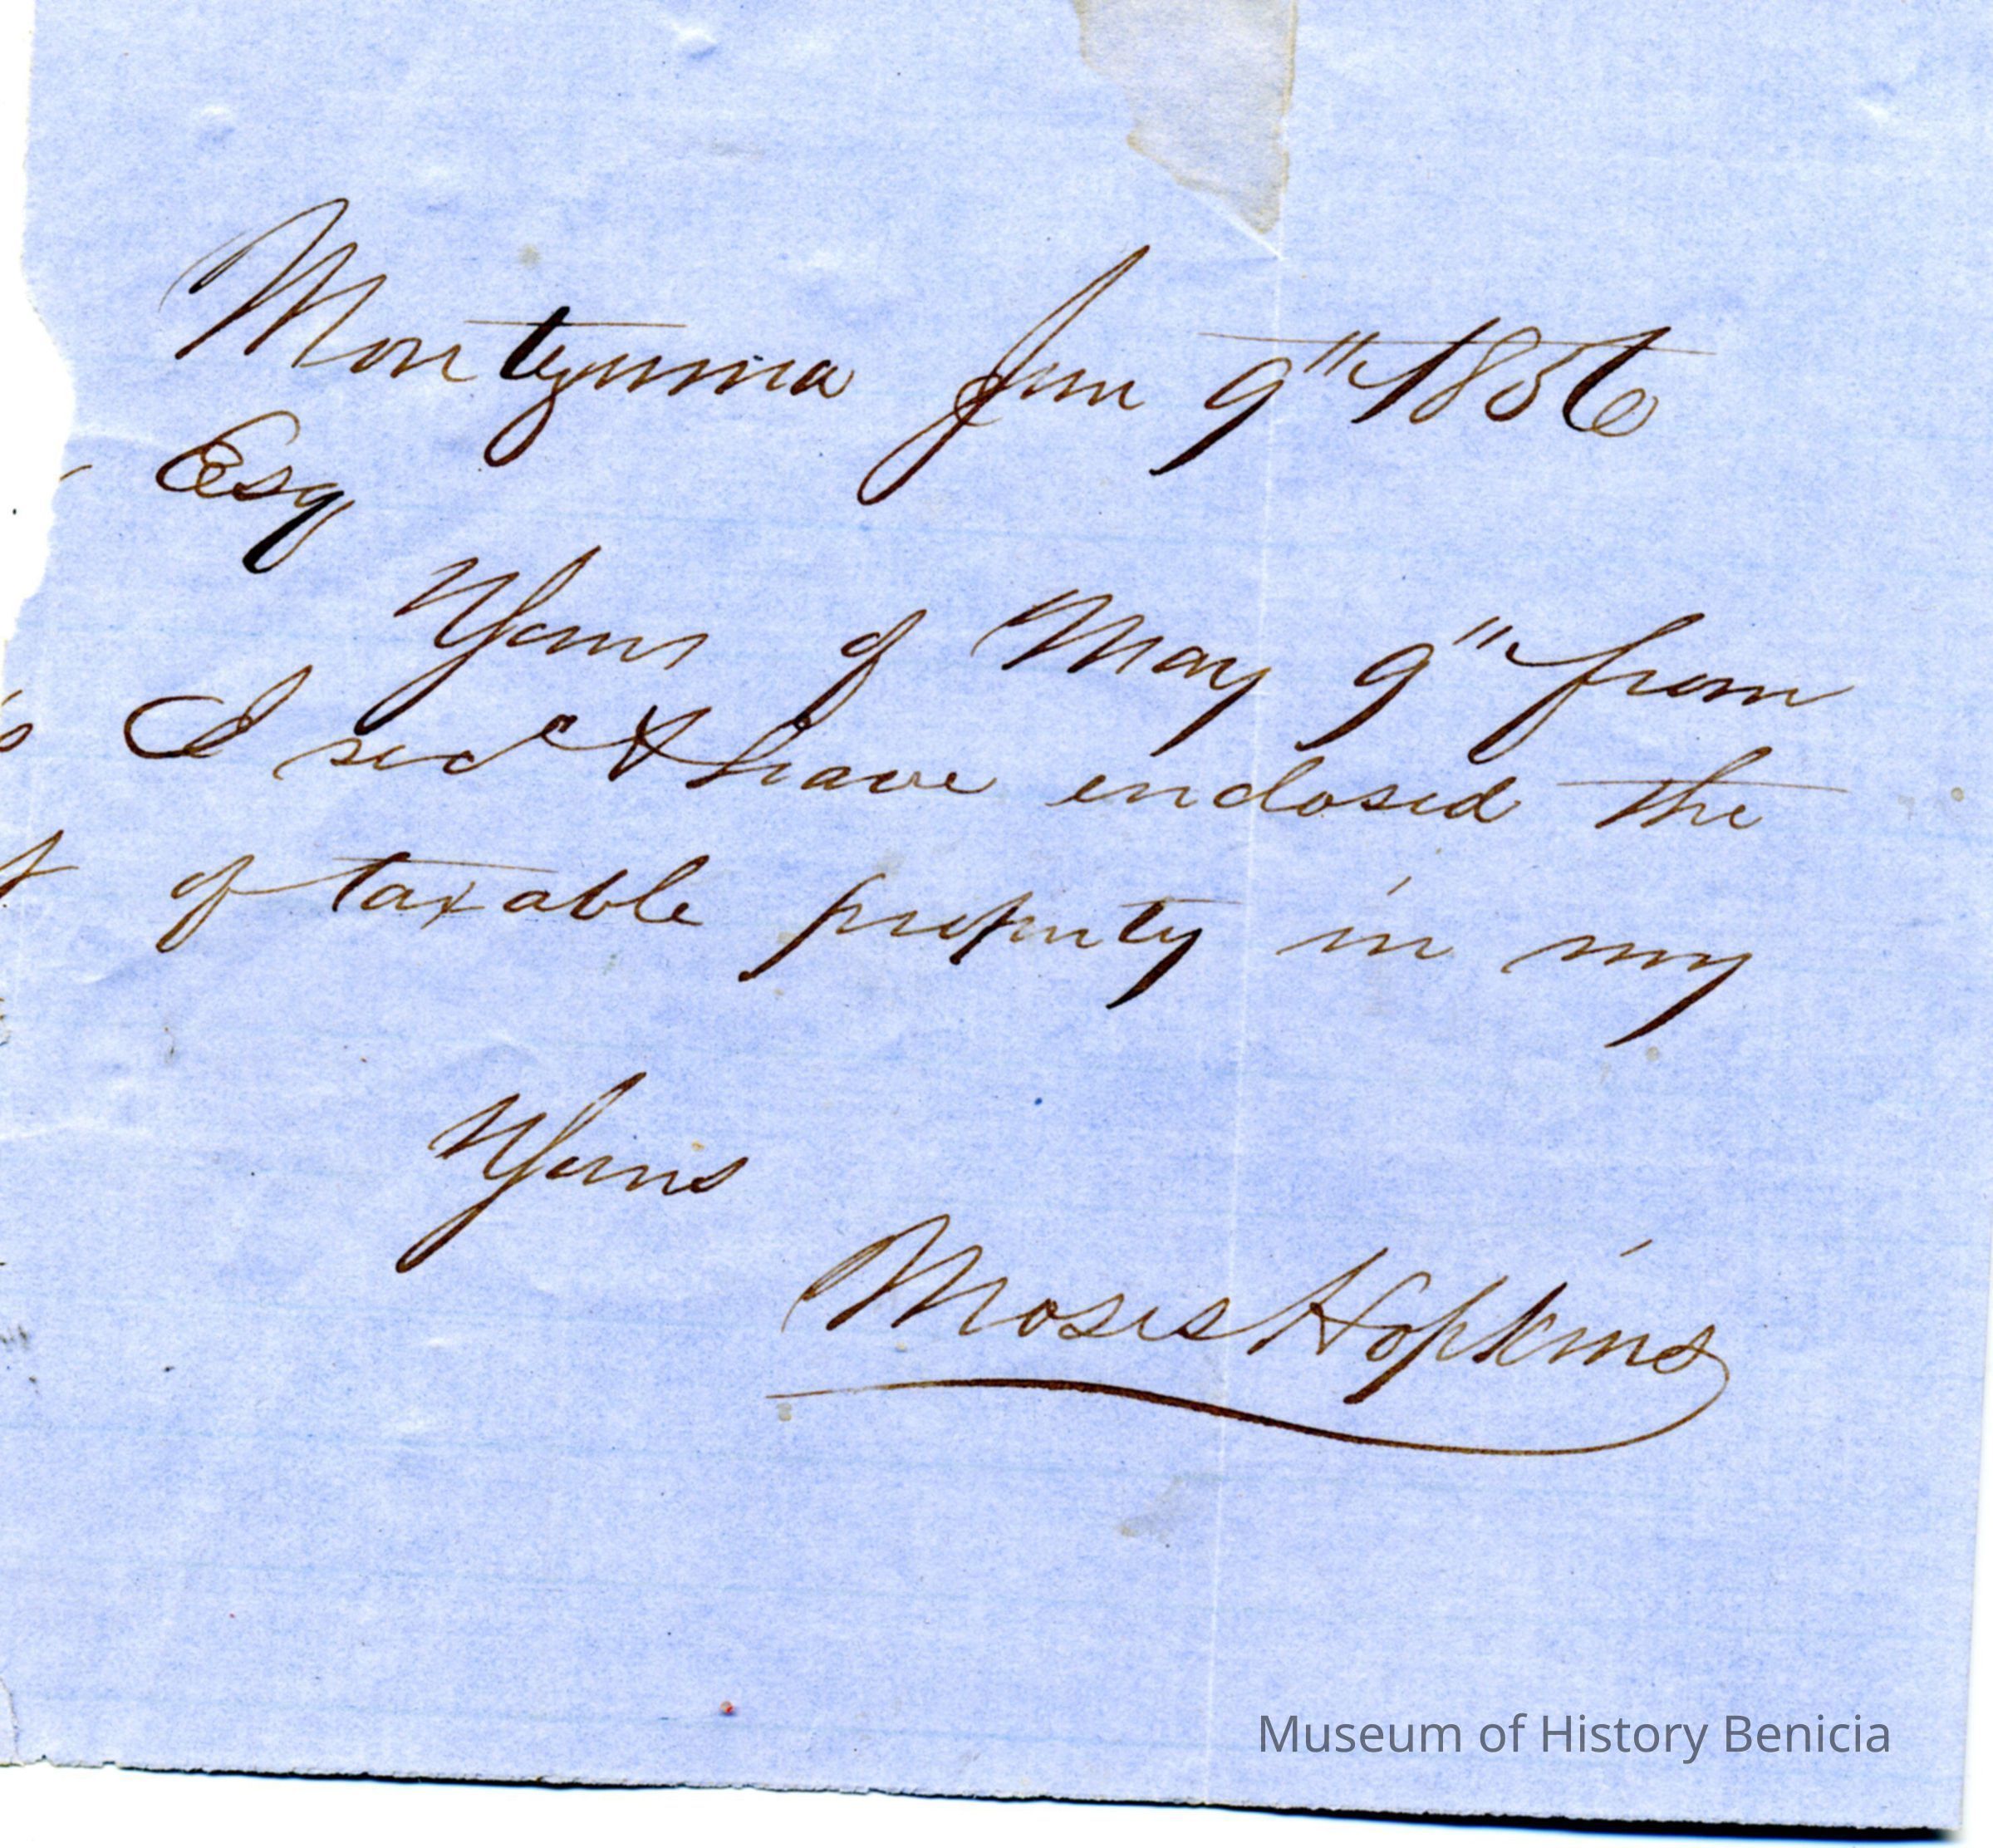 Montezuma June 9" 1856
Esq
Yours of May 9" from
I recd & have enclosed the
of taxable property in my
Yours
Moses Hopkins
Museum of History Benicia